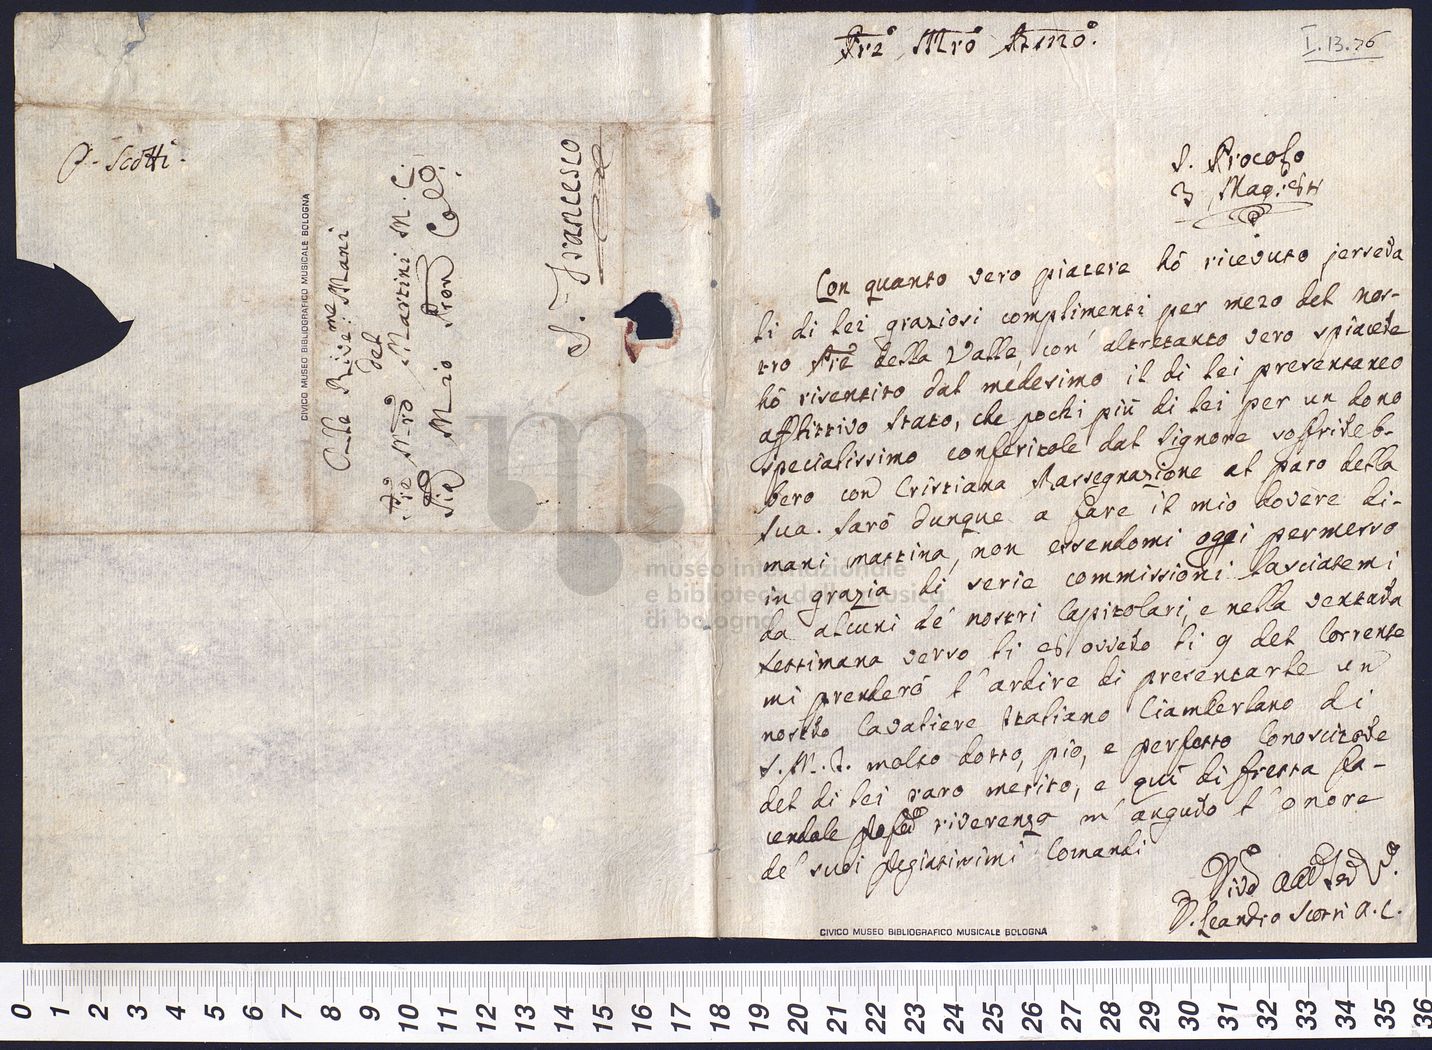 P. Scotti.
Alle Rive.me Mani
del
Pre Mro Martini M. C.
Pia Mio Pron Colo.
S. Francesco
CIVICO MUSEO BIBLIOGRAFICO MUSICALE BOLOGNA
Pre Mro Stimo.
I.13.76
S. Procolo
3 Mag:
Con quanto vero piacere hò ricevuto jersera
li di lei graziosi complimenti per mezo del nos-
tro Pre della Valle, con altretanto vero spiacere
hò risentito dal medesimo il di lei presentaneo
afflittivo stato, che pochi più di lei per un dono
specialissimo conferitole dal Signore soffrireb-
bero con Cristiana Rassegnazione al paro della
sua. Sarò dunque a fare il mio dovere di-
mani mattina, non essendomi oggi permesso
in grazia di serie commissioni lasciatemi
da alcuni de' nostri Capitolari, e nella ventura
settimana verso li 8 ovvero li 9 del Corrente
mi prenderò l'ardire di presentarle un
nostro Cavaliere Italiano Ciamberlano di
S. M. I. molto dotto, pio, e perfetto Conoscitore
del di lei raro merito, e quì di fretta fa-
cendole riverenza m'auguro l'onore
de' suoi pregiatissimi Comandi
D. Leandro Scotti A. C.
CIVICO MUSEO BIBLIOGRAFICO MUSICALE BOLOGNA
museo internazionale
e biblioteca della musica
di bologna
0 1 2 3 4 5 6 7 8 9 10 11 12 13 14 15 16 17 18 19 20 21 22 23 24 25 26 27 28 29 30 31 32 33 34 35 36